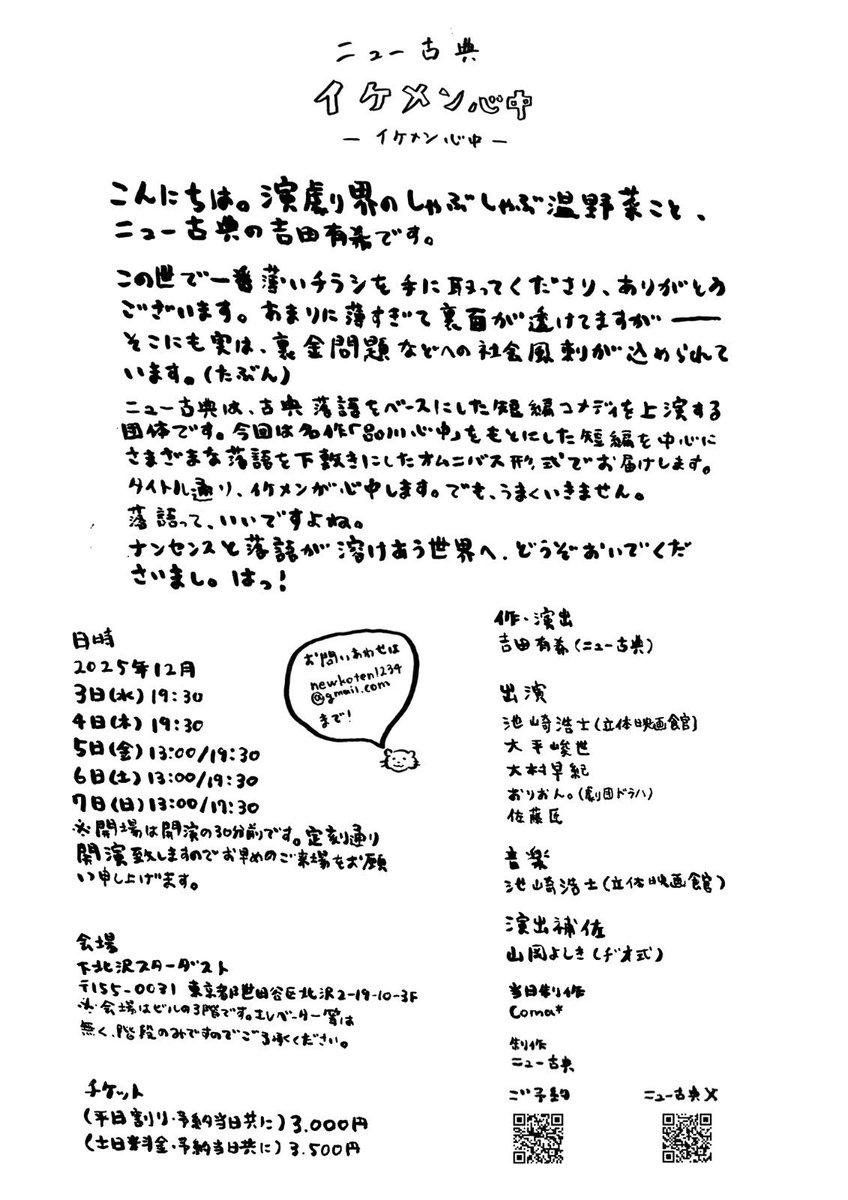 ニュー古典
イケメン心中
－イケメン心中－
こんにちは。演劇界のしゃぶしゃぶ温野菜こと、
ニュー古典の吉田有希です。
この世で一番薄いチラシを手に取ってくださり、ありがとう
ございます。あまりに薄すぎて裏面が透けてますが――
そこにも実は、裏金問題などへの社会風刺が込められて
います。(たぶん)
ニュー古典は、古典落語をベースにした短編コメディを上演する
団体です。今回は名作「品川心中」をもとにした短編を中心に
さまざまな落語を下敷きにしたオムニバス形式でお届けします。
タイトル通り、イケメンが心中します。でも、うまくいきません。
落語って、いいですよね。
ナンセンスと落語が溶けあう世界へ、どうぞおいでくだ
さいまし。はっ!
日時
2025年12月
3日(水)19:30
4日(木)19:30
5日(金)13:00/19:30
6日(土)13:00/19:30
7日(日)13:00/17:30
※開場は開演の30分前です。定刻通り
開演致しますのでお早めのご来場をお願
い申し上げます。
お問いあわせは
newkoten1234
@gmail.com
まで!
会場
下北沢スターダスト
〒155-0031 東京都世田谷区北沢2-19-10-3F
※会場はビルの3階です。エレベーター等は
無く、階段のみですのでご了承ください。
チケット
(平日割り・予約当日共に)3.000円
(土日料金・予約当日共に)3.500円
作・演出
吉田有希(ニュー古典)
出演
池崎浩士(立体映画館)
大平峻世
大村早紀
おりおん。(劇団ドラハ)
佐藤匠
音楽
池崎浩士(立体映画館)
演出補佐
山岡よしき(ヂオ式)
当日制作
Coma*
制作
ニュー古典
ご予約
ニュー古典X